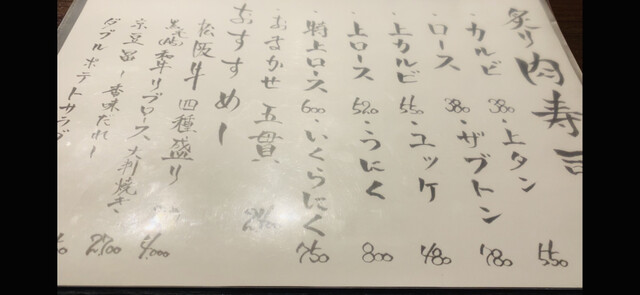 炙り肉寿司
・カルビ 380 ・上タン 550
・ロース 380 ・ザブトン 780
・上カルビ 550 ・ユッケ 480
・上ロース 520 ・うにく 800
・特上ロース 600 ・いくらにく 750
・おまかせ 五貫
おすすめ
松阪牛 四種盛り
黒毛和牛リブロース 大判焼き 4000
京豆冨 香味だれ 2700
ダブルポテトサラダ